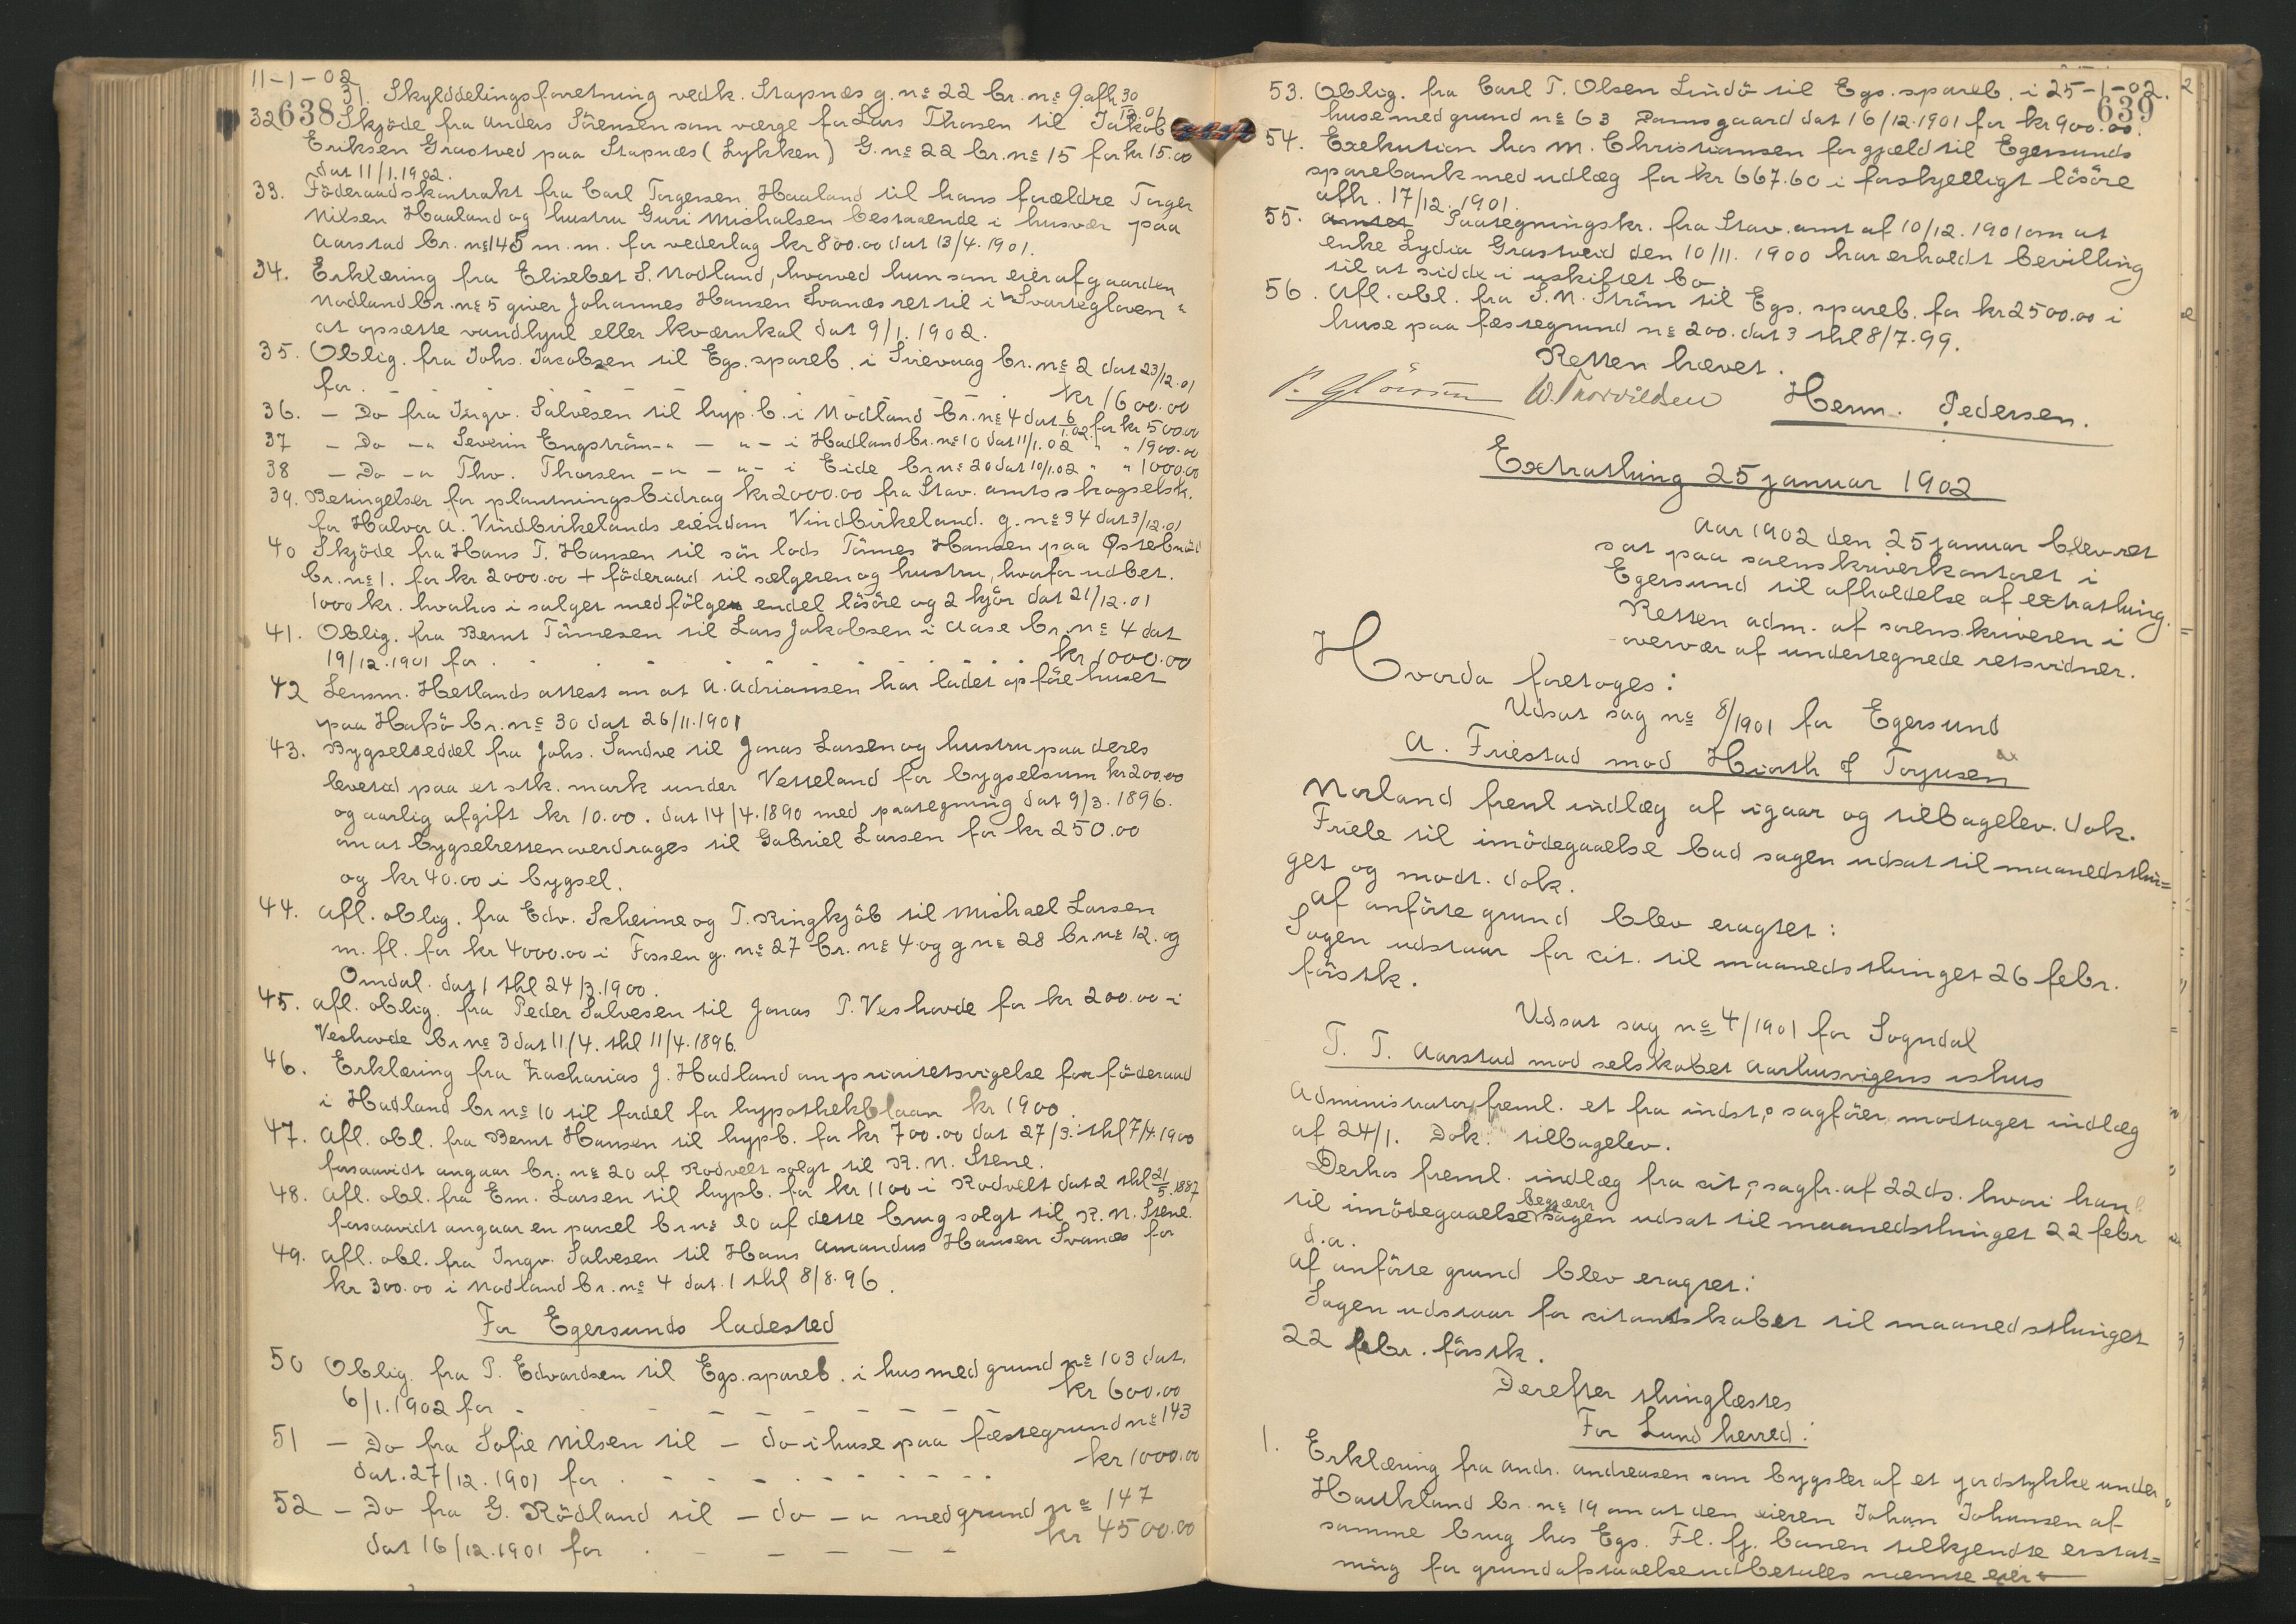 11-1-02
638
31. Skylddelingsforretning vedk. Stapnæs g. nº 22 br. nº 9 afh 30/12.01
32 Skjöde fra Anders Sörensen som værge for Lars Thorsen til Jakob
Eriksen Grastved paa Stapnæs (Lykken) G. nº 22 br. nº 15 for kr 15.00
dat 11/1.1902.
33. Föderaadskontrakt fra Carl Torgersen Haaland til hans forældre Torger
Nilsen Haaland og hustru Guri Michalsen bestaaende i husvær paa
Aarstad br. nº 145 m. m. for vederlag kr 800.00 dat 13/4.1901.
34. Erklæring fra Elisebet S. Modland, hvorved hun som eier af gaarden
Modland br. nº 5 giver Johannes Hansen Svanæs ret til i "Svarteglaven"
at opsætte vandhjul eller kværnkal dat 9/1.1902.
35. Oblig. fra Johs. Jacobsen til Egs. spareb. i Sirevaag br. nº 2 dat 23/12.01
for . - - - - - - - kr 1600.00
36. - Do fra Ingv. Salvesen til hyp. b. i Modland br. nº 4 dat 6/1.02 for kr 500.00
37 - Do -" Severin Engström -" - " - i Hadland br. nº 10 dat 11/1.02 " " 1900.00
38 - Do -" Thv. Thorsen -" - " - i Eide br. nº 20 dat 10/1.02 " " 1000.00
39. Betingelser for plantningsbidrag kr 2000.00 fra Stav. amts skogselsk.
for Halvor A. Vindbirkelands eiendom Vindbirkeland. g. nº 34 dat 3/12.01
40 Skjöde fra Hans T. Hansen til sön lods Tönnes Hansen paa Østebröd
br. nº 1. for kr 2000.00 + föderaad til sælgeren og hustru, hvorfor udbet.
1000 kr. hvorhos i salget medfölger endel lösöre og 2 kjör dat 21/12.01
41. Oblig. fra Bernt Tönnesen til Lars Jakobsen i Aase br. nº 4 dat
19/12.1901 for . . . . . . . . . . kr 1000.00
42 Lensm. Hetlands attest om at A. Adriansen har ladet opföre huset
paa Hafsö br. nº 30 dat 26/11.1901
43. Bygselseddel fra Johs. Sandve til Jonas Larsen og hustru paa deres
levetid paa et stk. mark under Vetteland for bygselsum kr 200.00
og aarlig afgift kr 10.00. dat 14/4.1890 med paategning dat 9/3.1896.
om at bygselretten overdrages til Gabriel Larsen for kr 250.00
og kr 40.00 i bygsel.
44. Afl. oblig. fra Edv. Scheime og T. Ringkjöb til Michael Larsen
m. fl. for kr 4000.00 i Fossen g. nº 27 br. nº 4 og g nº 28 br. nº 12. og
Omdal. dat 1 thl 24/3.1900.
45. Afl. oblig. fra Peder Salvesen til Jonas P. Veshovde for kr 200.00 i
Veshovde br nº 3 dat 11/4. thl 11/4.1896.
46. Erklæring fra Zacharias J. Hadland om prioritetsvigelse for föderaad
i Hadland br nº 10 til fordel for hypothekblaan kr 1900.
47. Afl. obl. fra Bernt Hansen til hypb. for kr 700.00 dat 27/3. thl 7/4.1900
forsaavidt angaar br. nº 20 af Rodvelt solgt til R. N. Stene.
48. Afl. obl. fra Em. Larsen til hypb. for kr 1100 i Rodvelt dat 2 thl 21/5.1887
forsaavidt angaar en parsel br nº 20 af dette brug solgt til R. N. Stene.
49. Afl. obl. fra Ingv. Salvesen til Hans Amandus Hansen Svanæs for
kr 300.00 i Modland br. nº 4 dat. 1 thl 8/8.96.
For Egersunds ladested
50 Oblig. fra P. Edvardsen til Egs. spareb. i hus med grund nº 103 dat.
6/1.1902 for - - - - - - - - kr 600.00
51 - Do fra Sofie Nilsen til - do - i huse paa fæstegrund nº 143
dat. 27/12.1901 for . - - - - - - - kr 1000.00
52 - Do fra G. Rödland til - do - " med grund nº 147
dat 16/12.1901 for . - - - - - kr 4500.00
25-1-02.
639
53. Oblig. fra Carl T. Olsen Lindö til Egs. spareb. i
huse med grund nº 63 Damsgaard dat 16/12.1901 for kr 900.00.
54. Exekution hos M. Christiansen for gjæld til Egersunds
sparebank med udlæg for kr 667.60 i forskjelligt lösöre
afh. 17/12.1901.
55. Paategningskr. fra Stav. amt af 10/12.1901 om at
enke Lydia Grastveid den 10/11.1900 har erholdt bevilling
til at sidde i uskiftet bo.
56. Afl. obl. fra S. N. Ström til Egs. spareb. for kr 2500.00 i
huse paa fæstegrund nº 200. dat 3 thl 8/7.99.
Retten hævet.
W. Thorvildsen Herm. Pedersen.
Extrathing 25 januar 1902
Aar 1902 den 25 januar blev ret
sat paa sorenskriverkontoret i
Egersund til afholdelse af extrathing.
Retten adm. af sorenskriveren i
overvær af undertegnede retsvidner.
Hvorda foretoges:
Udsat sag nº 8/1901 for Egersund
A. Friestad mod Hiorth & Torjusen
Morland freml indlæg af igaar og tilbagelev. dok.
Friele til imödegaaelse bad sagen udsat til maanedsthin=
get og modt. dok.
Af anförte grund blev eragtet:
Sagen udstaar for cit. til maanedsthinget 26 febr.
förstk.
Udsat sag nº 4/1901 for Sogndal
T. T. Aarstad mod selskabet Aarhusvigens ishus
Administrator freml. et fra indst,s sagförer modtaget indlæg
af 24/1. Dok. tilbagelev.
Derhos freml. indlæg fra cit,s sagfr. af 22 ds. hvori han
begjærer
til imödegaaelse sagen udsat til maanedsthinget 22 febr
d.a.
Af anförte grund blev eragtet:
Sagen udstaar for citantskabet til maanedsthinget
22 febr. förstk.
Derefter thinglæstes
For Lund herred:
1. Erklæring fra Andr. Andreasen som bygsler af et jordstykke under
Haukland br. nº 19 om at den eieren Johan Johansen af
samme brug hos Egs. Fl. fj. banen tilkjendte erstat=
ning for grundafstaaelse udbetales nævnte eier